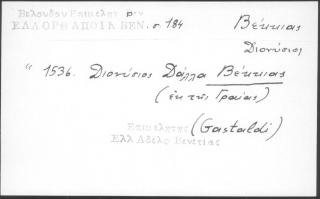 Βελουδου Επιτελετ ρεν
ΕΛΛ ΟΡΘ ΑΠΟΙΚ ΒΕΝ. σ. 184
Βέκκιας
Διονύσιος
" 1536. Διονύσιος Δάλλα Βέκκιας
(ἐκ τῆς Γραίας)
Επιτελητης (Gastaldi)
Ελλ Αδελφ Βενετιας